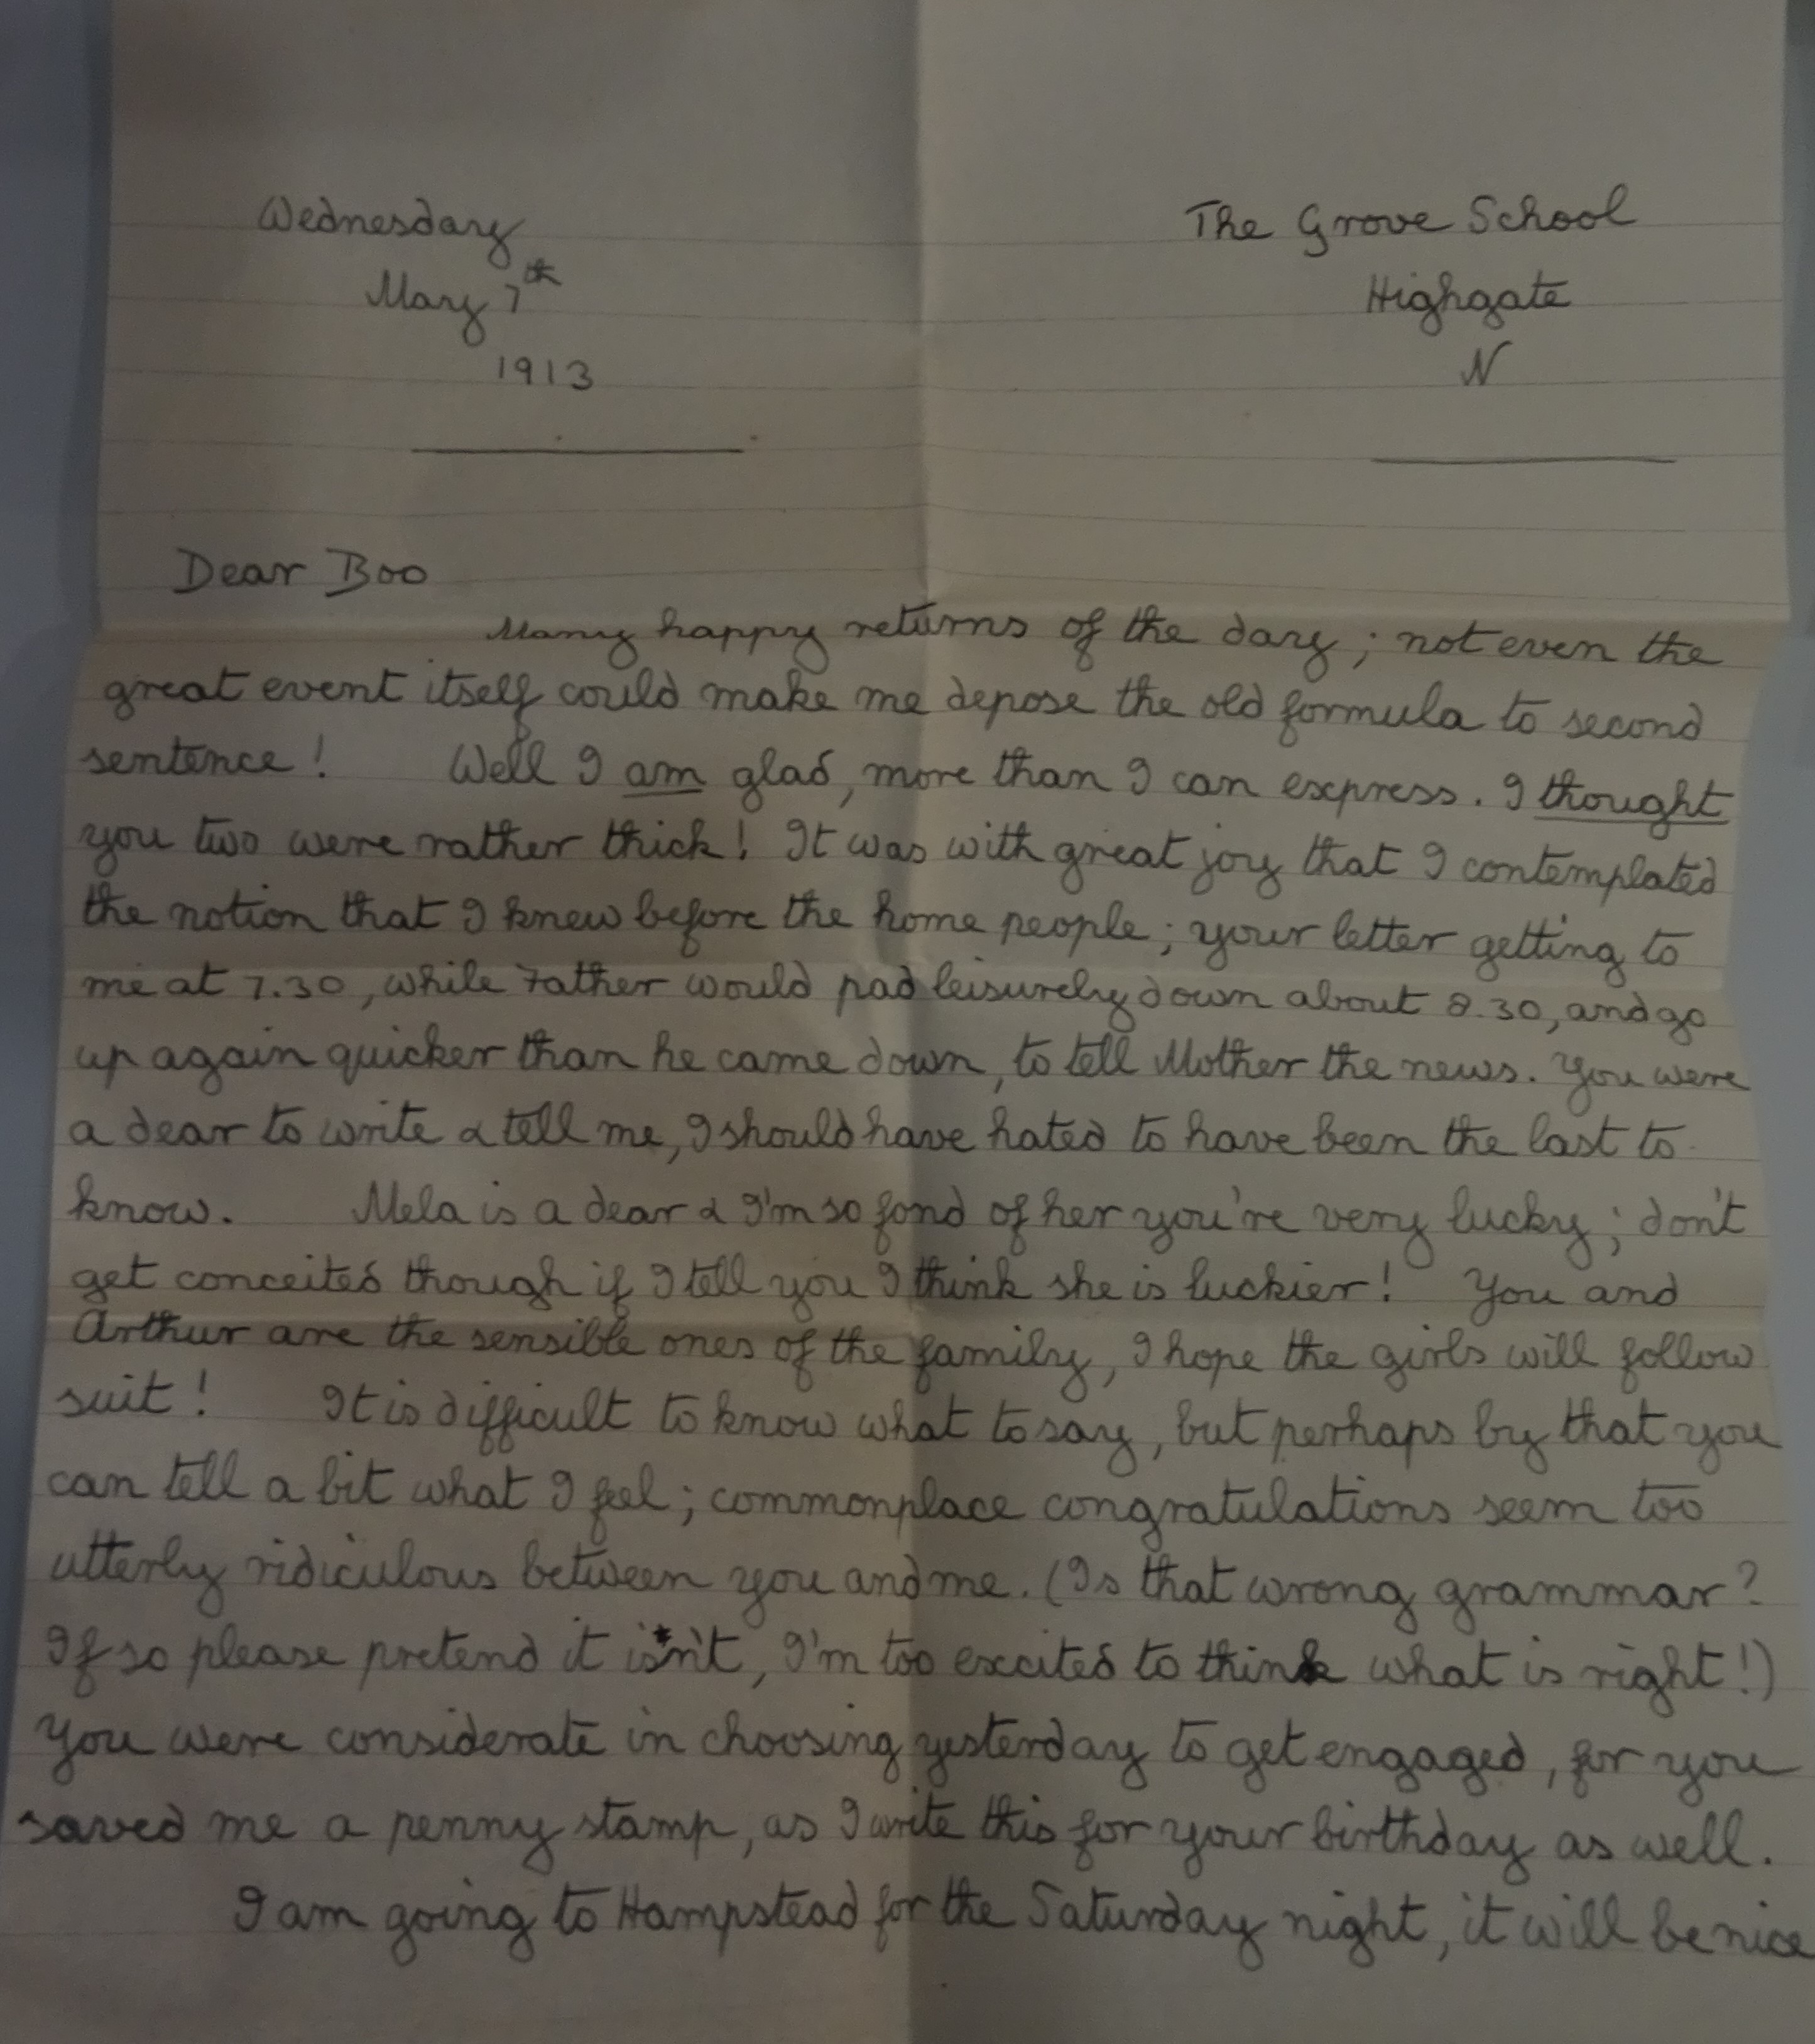 Wednesday
May 7th
1913
The Grove School
Highgate
N
Dear Boo
Many happy returns of the day; not even the
great event itself could make me depose the old formula to second
sentence! Well I am glad, more than I can express. I thought
you two were rather thick! It was with great joy that I contemplated
the notion that I knew before the home people; your letter getting to
me at 7.30, while Father would pad leisurely down about 8.30, and go
up again quicker than he came down, to tell Mother the news. You were
a dear to write & tell me, I should have hated to have been the last to
know. Mela is a dear & I'm so fond of her you're very lucky; don't
get conceited though if I tell you I think she is luckier! You and
Arthur are the sensible ones of the family, I hope the girls will follow
suit! It is difficult to know what to say, but perhaps by that you
can tell a bit what I feel; commonplace congratulations seem too
utterly ridiculous between you and me. (Is that wrong grammar?
If so please pretend it isn't, I'm too excited to think what is right!)
You were considerate in choosing yesterday to get engaged, for you
saved me a penny stamp, as I write this for your birthday as well.
I am going to Hampstead for the Saturday night, it will be nice